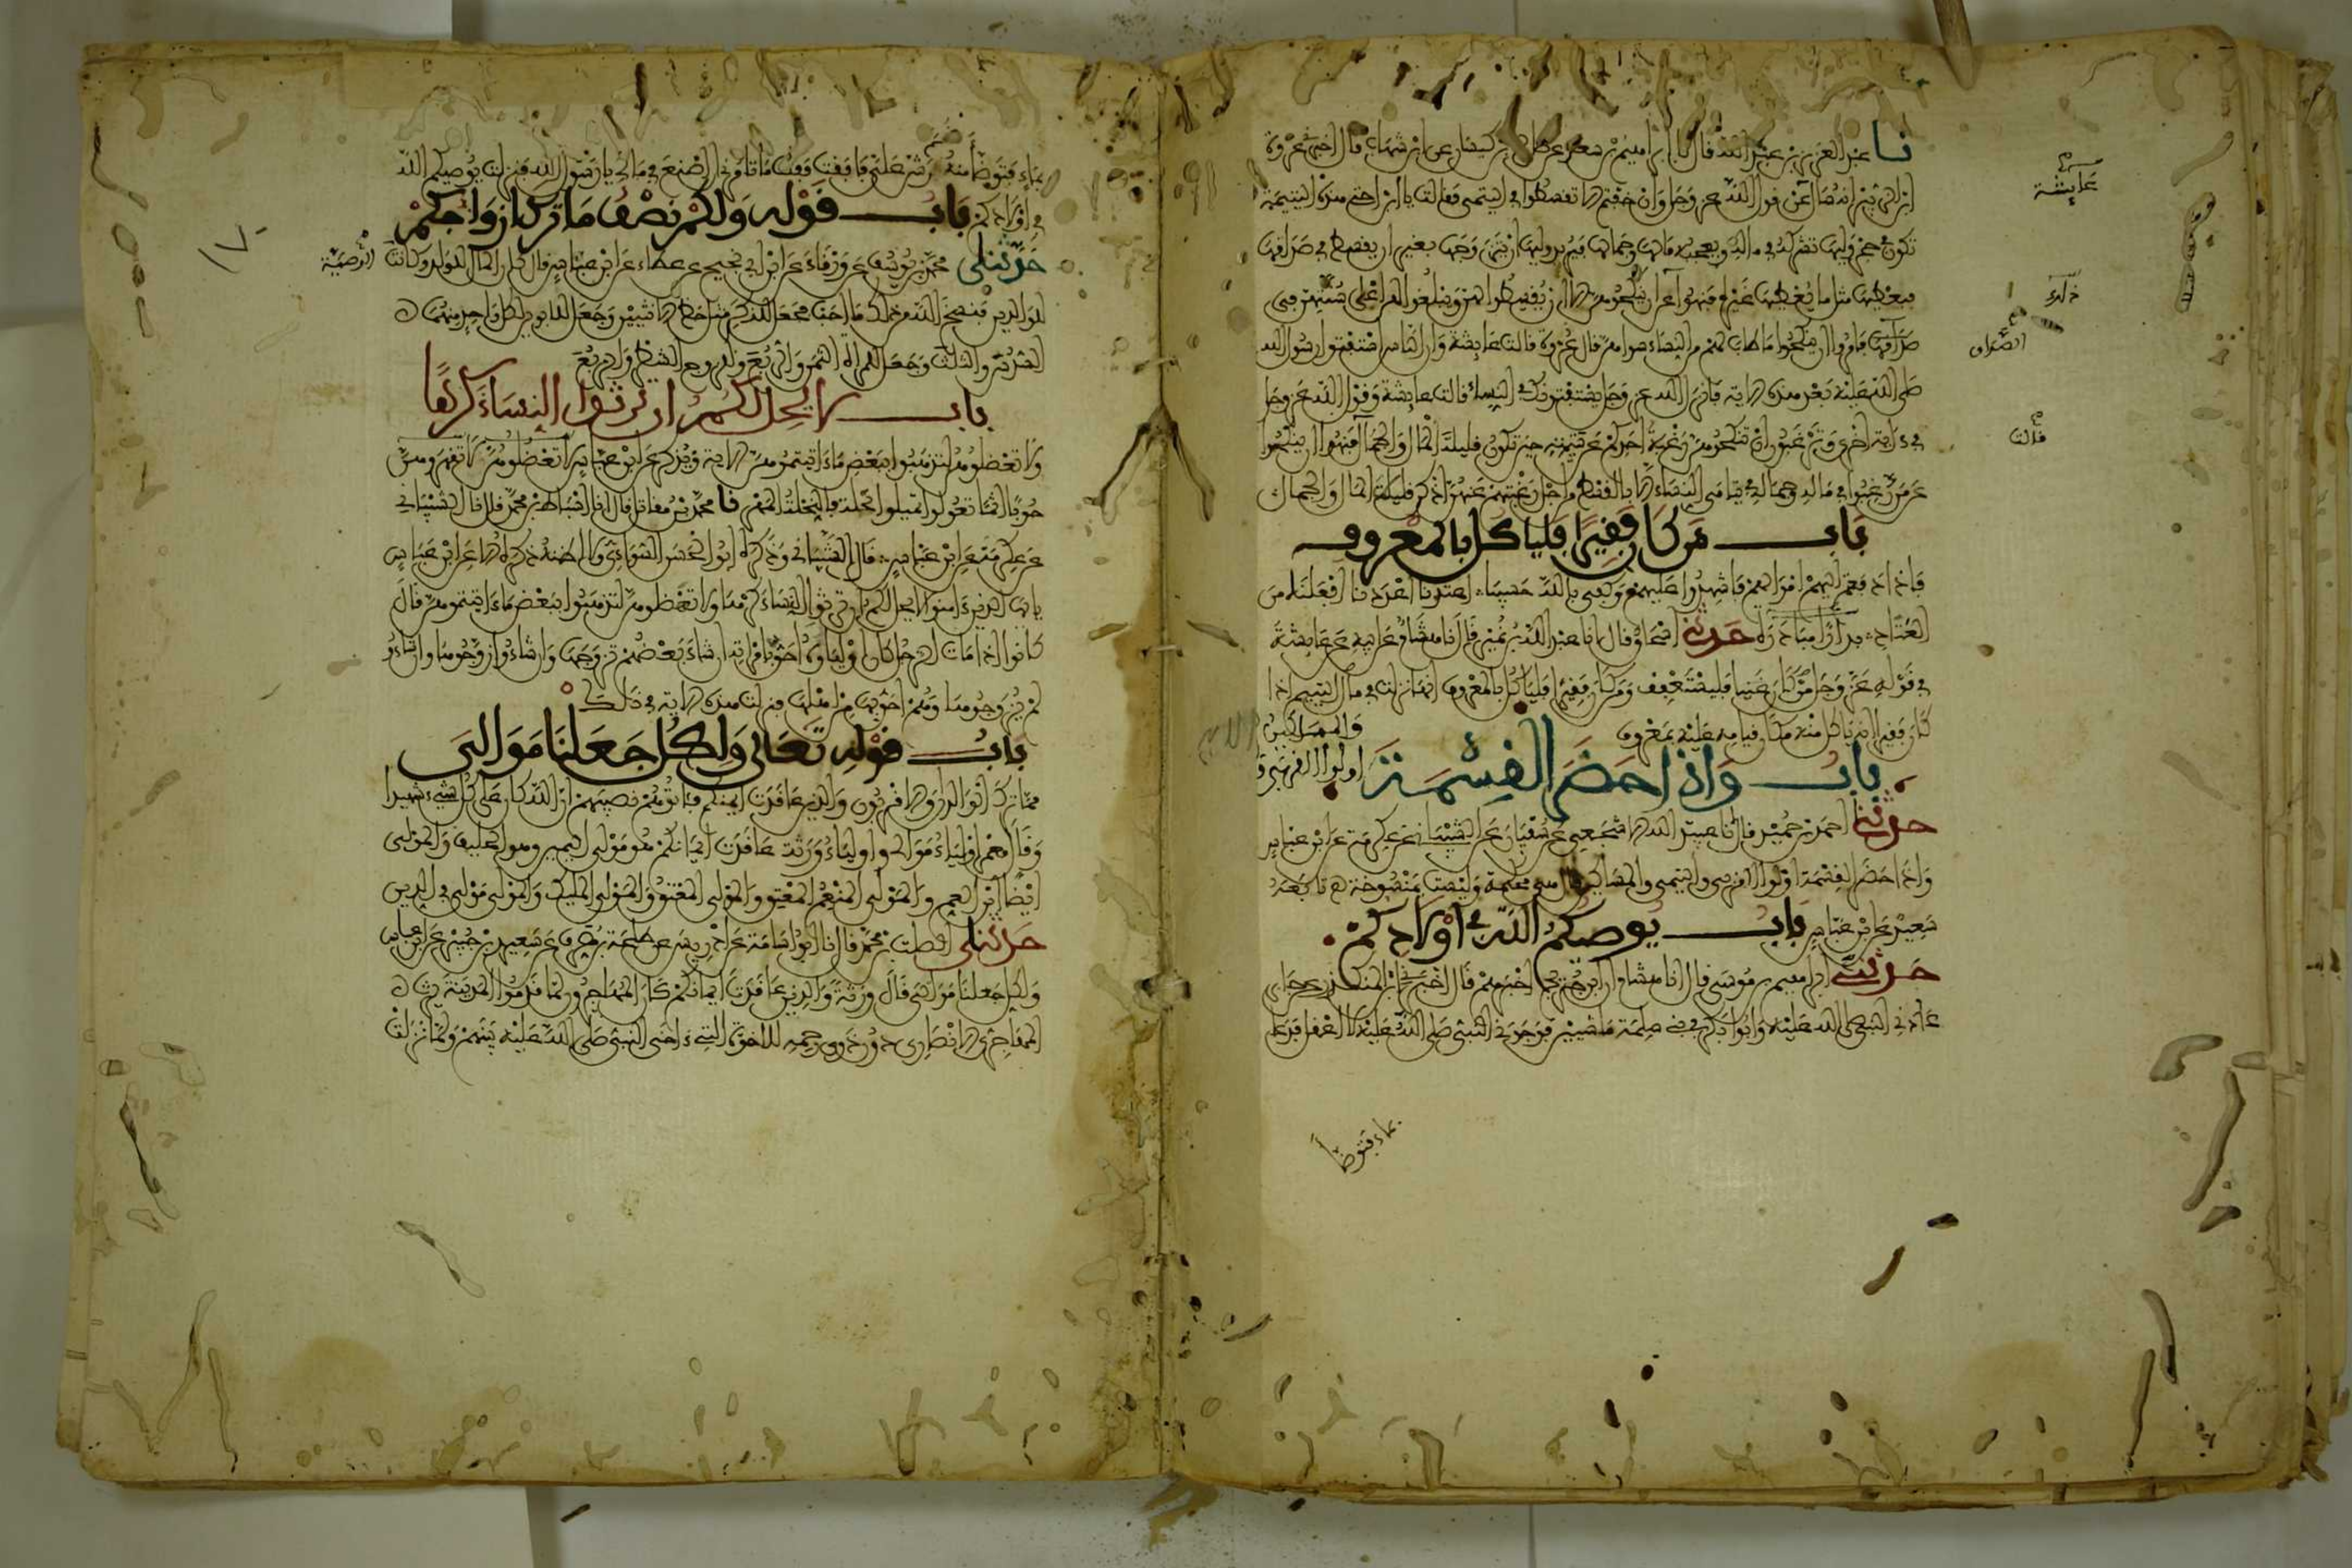 نا عبد العزيز بن عبد الله قال نا ابراهيم بن سعد عن صالح بن كيسان عن ابن شهاب قال اخبرني عروة
ابن الزبير انه سال عن قول الله عز وجل وان خفتم الا تقسطوا في اليتمى فقالت يا ابن اختي هذه اليتيمة
تكون في حجر وليها تشركه في ماله ويعجبه مالها وجمالها فيريد وليها ان يتزوجها بغير ان يقسط في صداقها
فيعطيها مثل ما يعطيها غيره فنهوا عن ان ينكحوهن الا ان يقسطوا لهن ويبلغوا لهن اعلى سنتهن في
صداقهن فامروا ان ينكحوا ما طاب لهم من النساء سواهن قال عروة قالت عايشة وان الناس استفتوا رسول الله
صلى الله عليه بعد هذه الاية فانزل الله عز وجل يستفتونك في النساء قالت عايشة وقول الله عز وجل
في ءاية اخرى وترغبون ان تنكحوهن رغبة احدكم عن يتيمته حين تكون قليلة المال والجمال فنهوا ان ينكحوا
عن من رغبوا في ماله وجماله في يتامى النساء الا بالقسط من اجل رغبتهم عنهن اذا كن قليلات المال والجمال
باب من كان فقيرا فلياكل بالمعروف
فاذا دفعتم اليهم اموالهم فاشهدوا عليهم وكفى بالله حسيبا اعتدنا اعددنا افعلنا من
العتاد بدارا مبادرة حدثني اسحاق قال انا عبد الله بن نمير قال نا هشام عن ابيه عن عايشة
في قوله عز وجل ومن كان غنيا فليستعفف ومن كان فقيرا فلياكل بالمعروف انها نزلت في مال اليتيم اذا
كان فقيرا انه ياكل منه مكان قيامه عليه بمعروف
باب واذا حضر القسمة اولوا القربى والمساكين
حدثنا احمد بن حميد قال نا عبيد الله الاشجعي عن سفيان عن الشيباني عن عكرمة عن ابن عباس
واذا حضر القسمة اولوا القربى واليتمى والمساكين قال هي محكمة وليست بمنسوخة تابعه
سعيد عن ابن عباس باب يوصيكم الله في اولادكم
حدثني ابراهيم بن موسى قال انا هشام ان ابن جريج اخبرهم قال اخبرني ابن المنكدر عن جابر
عادني النبي صلى الله عليه وابو بكر في بني سلمة ماشيين فوجدني النبي صلى الله عليه لا اعقل فدعا
بماء فتوضا
عايشة
ذلك
الصداق
قالت
بماء فتوضا منه ثم رش علي فافقت فقلت ما تامرني ان اصنع في مالي يا رسول الله فنزلت يوصيكم الله
في اولادكم باب قوله ولكم نصف ما ترك ازواجكم
حدثني محمد بن يوسف عن ورقاء عن ابن ابي نجيح عن عطاء عن ابن عباس قال كان المال للولد وكانت الوصية
للوالدين فنسخ الله من ذلك ما احب فجعل للذكر مثل حظ الانثيين وجعل للابوين لكل واحد منهما
السدس والثلث وجعل للمراة الثمن والربع وللزوج الشطر والربع
باب لا يحل لكم ان ترثوا النساء كرها
ولا تعضلوهن لتذهبوا ببعض ما ءاتيتموهن الاية ويذكر عن ابن عباس لا تعضلوهن لا تقهروهن
حوبا اثما تعولوا تميلوا نحلة فالنحلة المهر نا محمد بن مقاتل قال انا اسباط بن محمد قال نا الشيباني
عن عكرمة عن ابن عباس قال الشيباني وذكره ابو الحسن السوائي ولا اظنه ذكره الا عن ابن عباس
يا ايها الذين ءامنوا لا يحل لكم ان ترثوا النساء كرها ولا تعضلوهن لتذهبوا ببعض ما ءاتيتموهن قال
كانوا اذا مات الرجل كان اولياوه احق بامراته ان شاء بعضهم تزوجها وان شاءوا زوجوها وان شاءوا
لم يزوجوها وهم احق بها من اهلها فنزلت هذه الاية في ذلك
باب قوله تعالى ولكل جعلنا موالي
مما ترك الوالدان والاقربون والذين عاقدت ايمنكم فاتوهم نصيبهم ان الله كان على كل شيء شهيدا
وقال معمر اولياء موالي واولياء ورثة عاقدت ايمانكم هو مولى اليمين وهو الحليف والمولى
ايضا ابن العم والمولى المنعم المعتق والمولى المعتق والمولى المليك والمولى مولى في الدين
حدثني الصلت بن محمد قال نا ابو اسامة عن ادريس عن طلحة بن مصرف عن سعيد بن جبير عن ابن عباس
ولكل جعلنا موالي قال ورثة والذين عاقدت ايمانكم كان المهاجرون لما قدموا المدينة يرث
المهاجري الانصاري دون ذوي رحمه للاخوة التي ءاخى النبي صلى الله عليه بينهم ولما نزلت